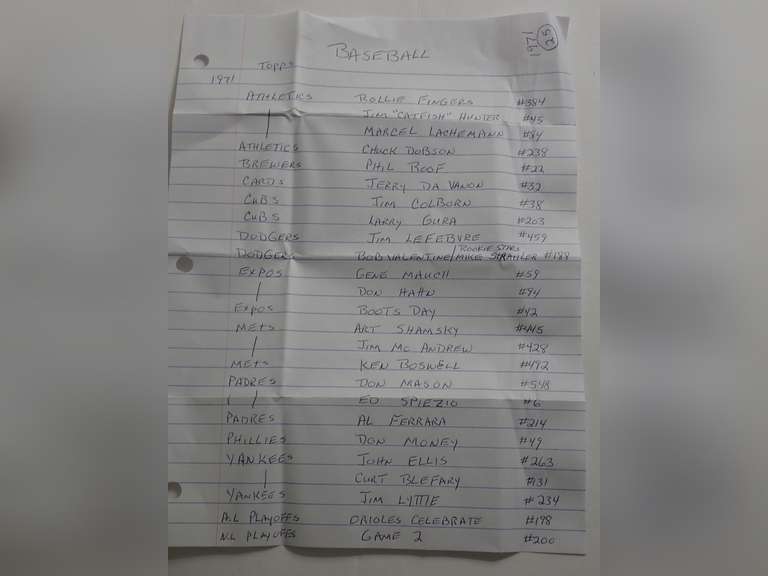 1971 (25)
BASEBALL
TOPPS
1971
ATHLETICS ROLLIE FINGERS #384
| JIM "CATFISH" HUNTER #45
| MARCEL LACHEMANN #84
ATHLETICS CHUCK DOBSON #238
BREWERS PHIL ROOF #22
CARDS JERRY DA VANON #32
CUBS JIM COLBORN #38
CUBS LARRY GURA #203
DODGERS JIM LEFEBVRE #459
DODGERS BOB VALENTINE/MIKE STRAHLER ROOKIE STARS #188
EXPOS GENE MAUCH #59
| DON HAHN #94
EXPOS BOOTS DAY #42
METS ART SHAMSKY #445
| JIM MC ANDREW #428
METS KEN BOSWELL #492
PADRES DON MASON #548
| ED SPIEZIO #6
PADRES AL FERRARA #214
PHILLIES DON MONEY #49
YANKEES JOHN ELLIS #263
| CURT BLEFARY #131
YANKEES JIM LYTTLE #234
A.L PLAYOFFS ORIOLES CELEBRATE #198
N.L PLAYOFFS GAME 2 #200